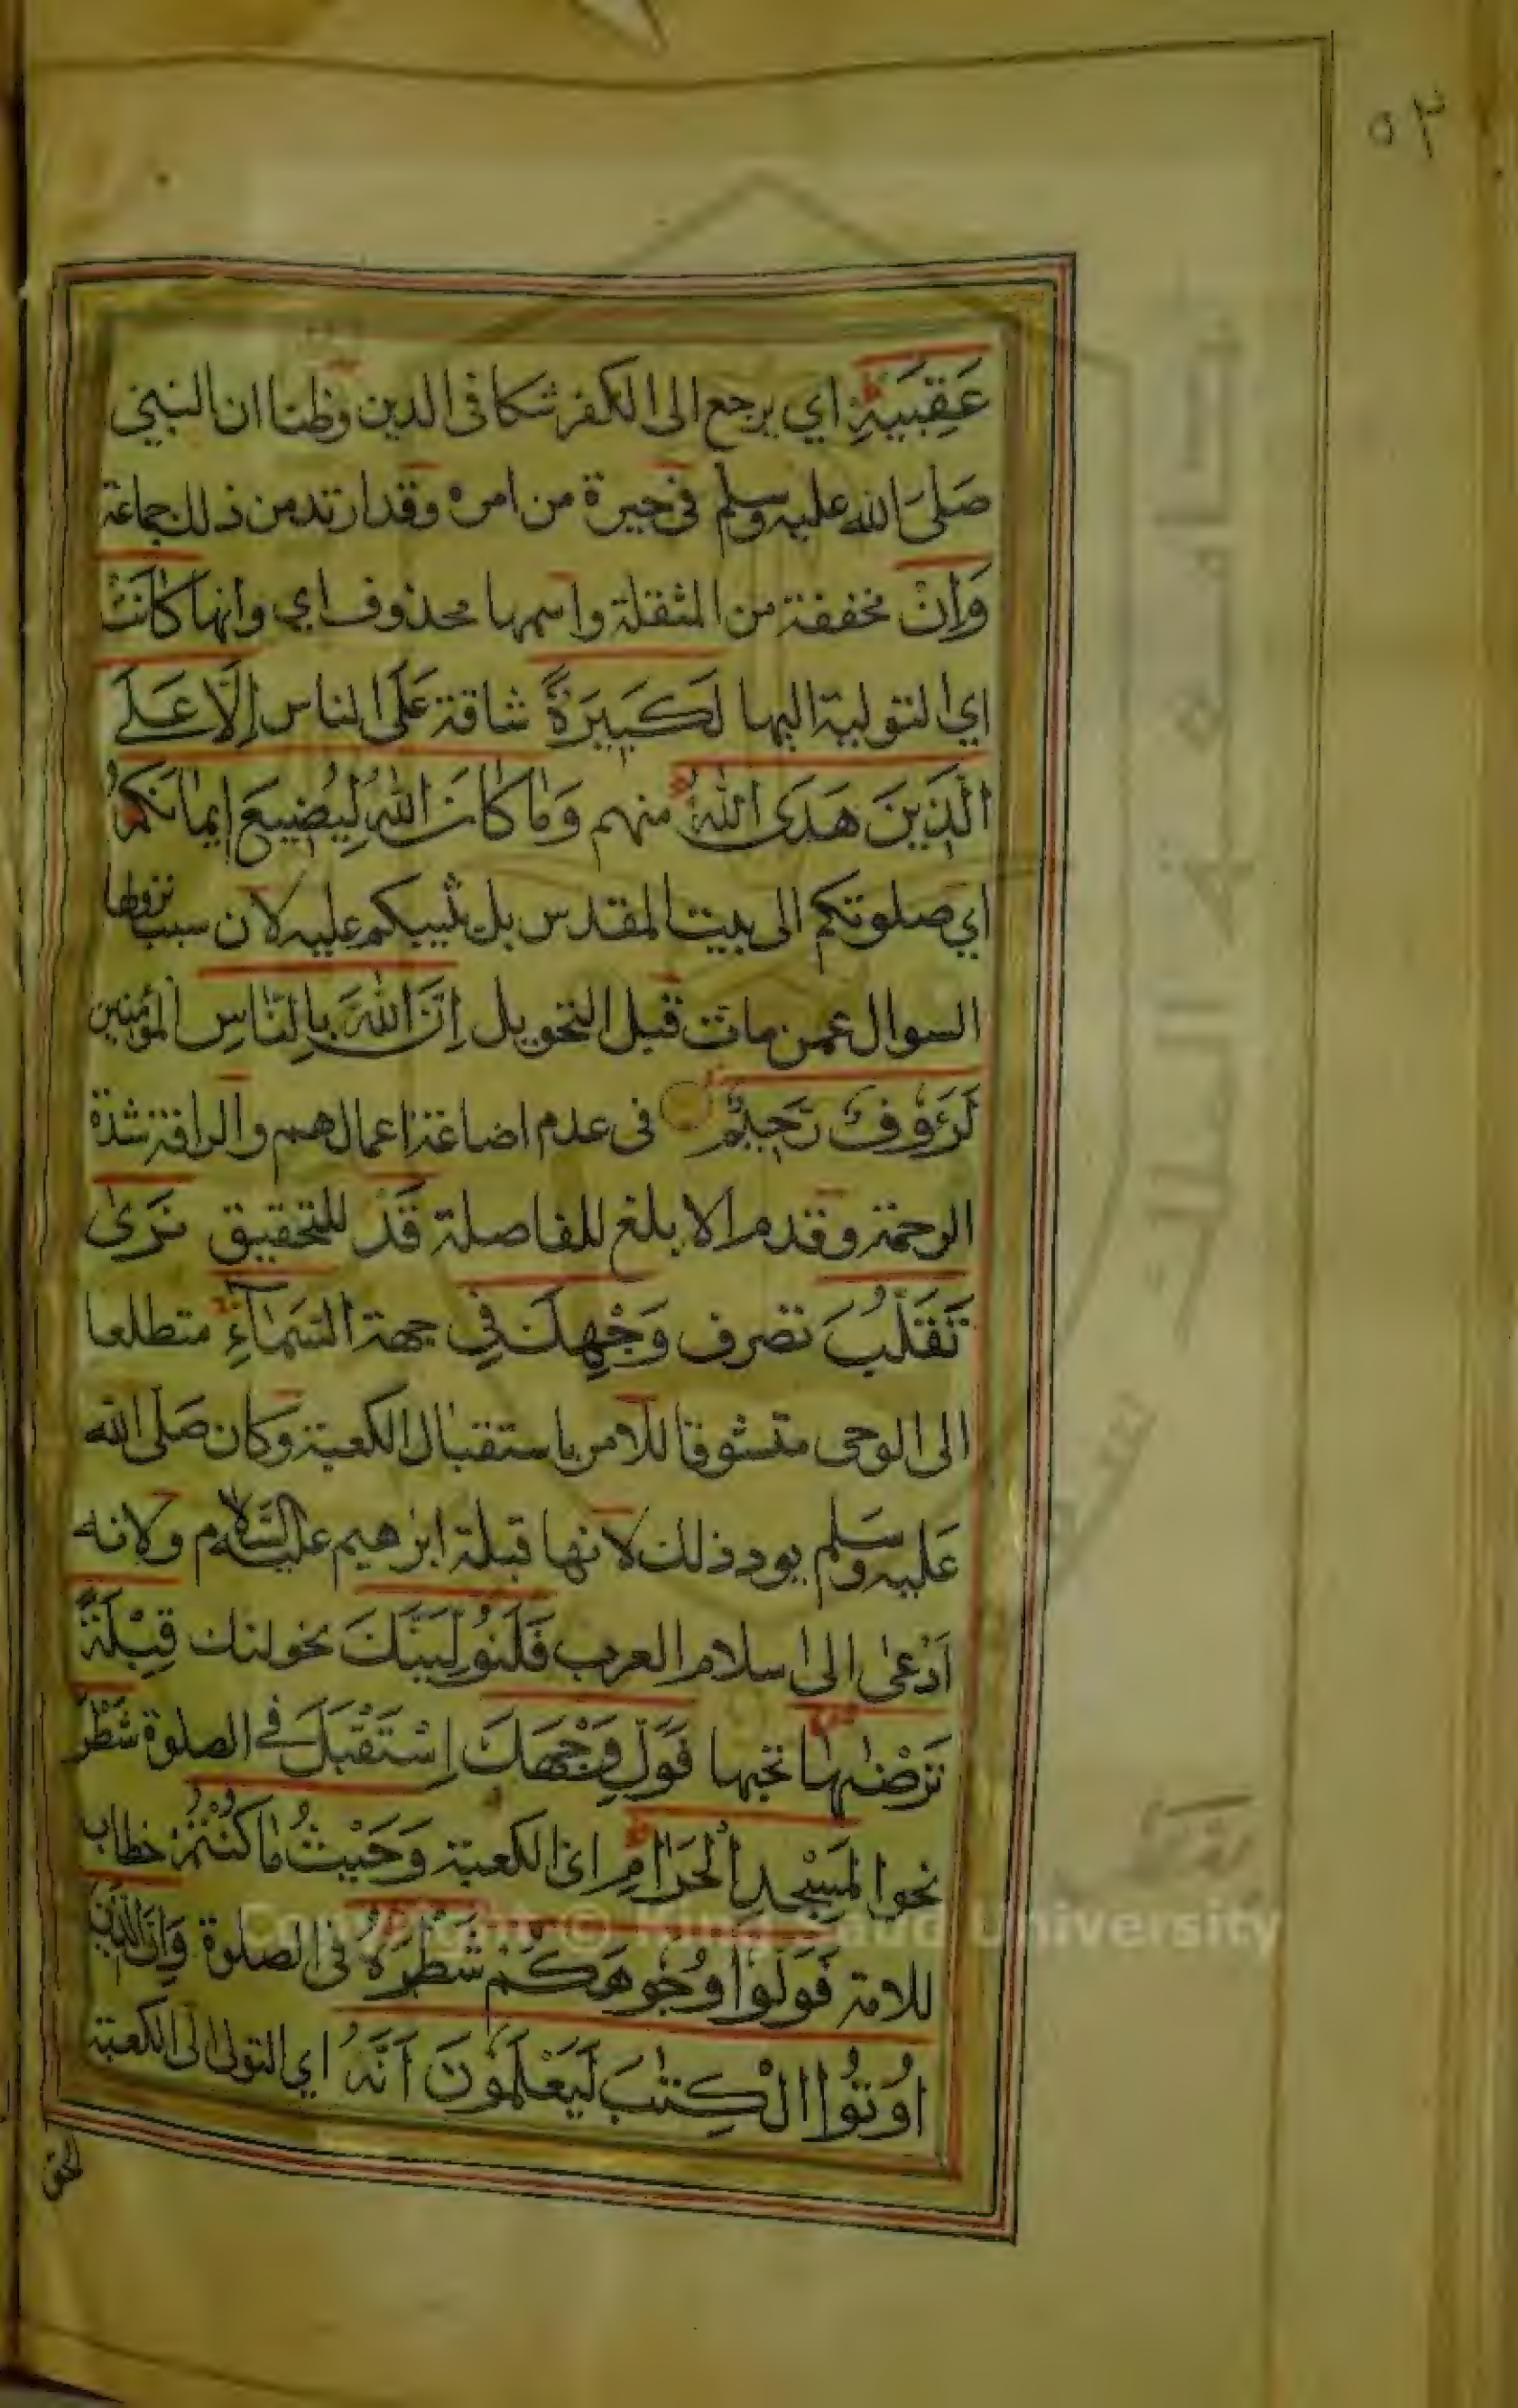 ٥٣
عَقِبَيْهِ اي يرجع الى الكفر شكا فى الدين وظنا ان النبي
صَلىَ الله عليه وسلم فى حيرة من امره وقد ارتد من ذلك جماعة
وَاِنْ مخففة من المثقلة واسمها محذوف اي وانها كَانَتْ
اي التولية اليها لَكَبِيرَةً شاقة عَلَى الناس اِلَّا عَلَے
الَّذِينَ هَدَى اللهُ منهم وَمَا كَانَ اللهُ لِيُضِيعَ اِيمَانَكُمْ
اي صلوتكم الى بيت المقدس بل يثيبكم عليه لان سبب نزولها
السوال عمن مات قبل التحويل اِنَّ اللهَ بِالنَّاسِ المؤمنين
لَرَؤُوفٌ رَحِيمٌ فى عدم اضاعة اعمالهم والرافة شدة
الرحمة وقدم الابلغ للفاصلة قَدْ للتحقيق نَرٰى
تَقَلُّبَ تصرف وَجْهِكَ فِي جهة السَّمَآءِ متطلعا
الى الوحى متشوقا للامر باستقبال الكعبة وكان صَلى الله
عليه وسَلم يود ذلك لانها قبلة ابرهيم عليه السَّلام ولانه
اَدْعى الى اسلام العرب فَلَنُوَلِّيَنَّكَ نحولنك قِبْلَةً
تَرْضٰىهَا تحبها فَوَلِّ وَجْهَكَ اِسْتَقْبَلَ فے الصلوة شَطْرَ
نحو الْمَسْجِدِ الْحَرَامِ اى الكعبة وَحَيْثُ مَا كُنْتُمْ خطاب
للامة فَوَلُّوا وُجُوهَكُمْ شَطْرَهُ فى الصلوة وَاِنَّ الَّذِينَ
اُوتُوا الْكِتٰبَ لَيَعْلَمُونَ اَنَّهُ اي التولى الى الكعبة
الحق
Copyright © King Saud University